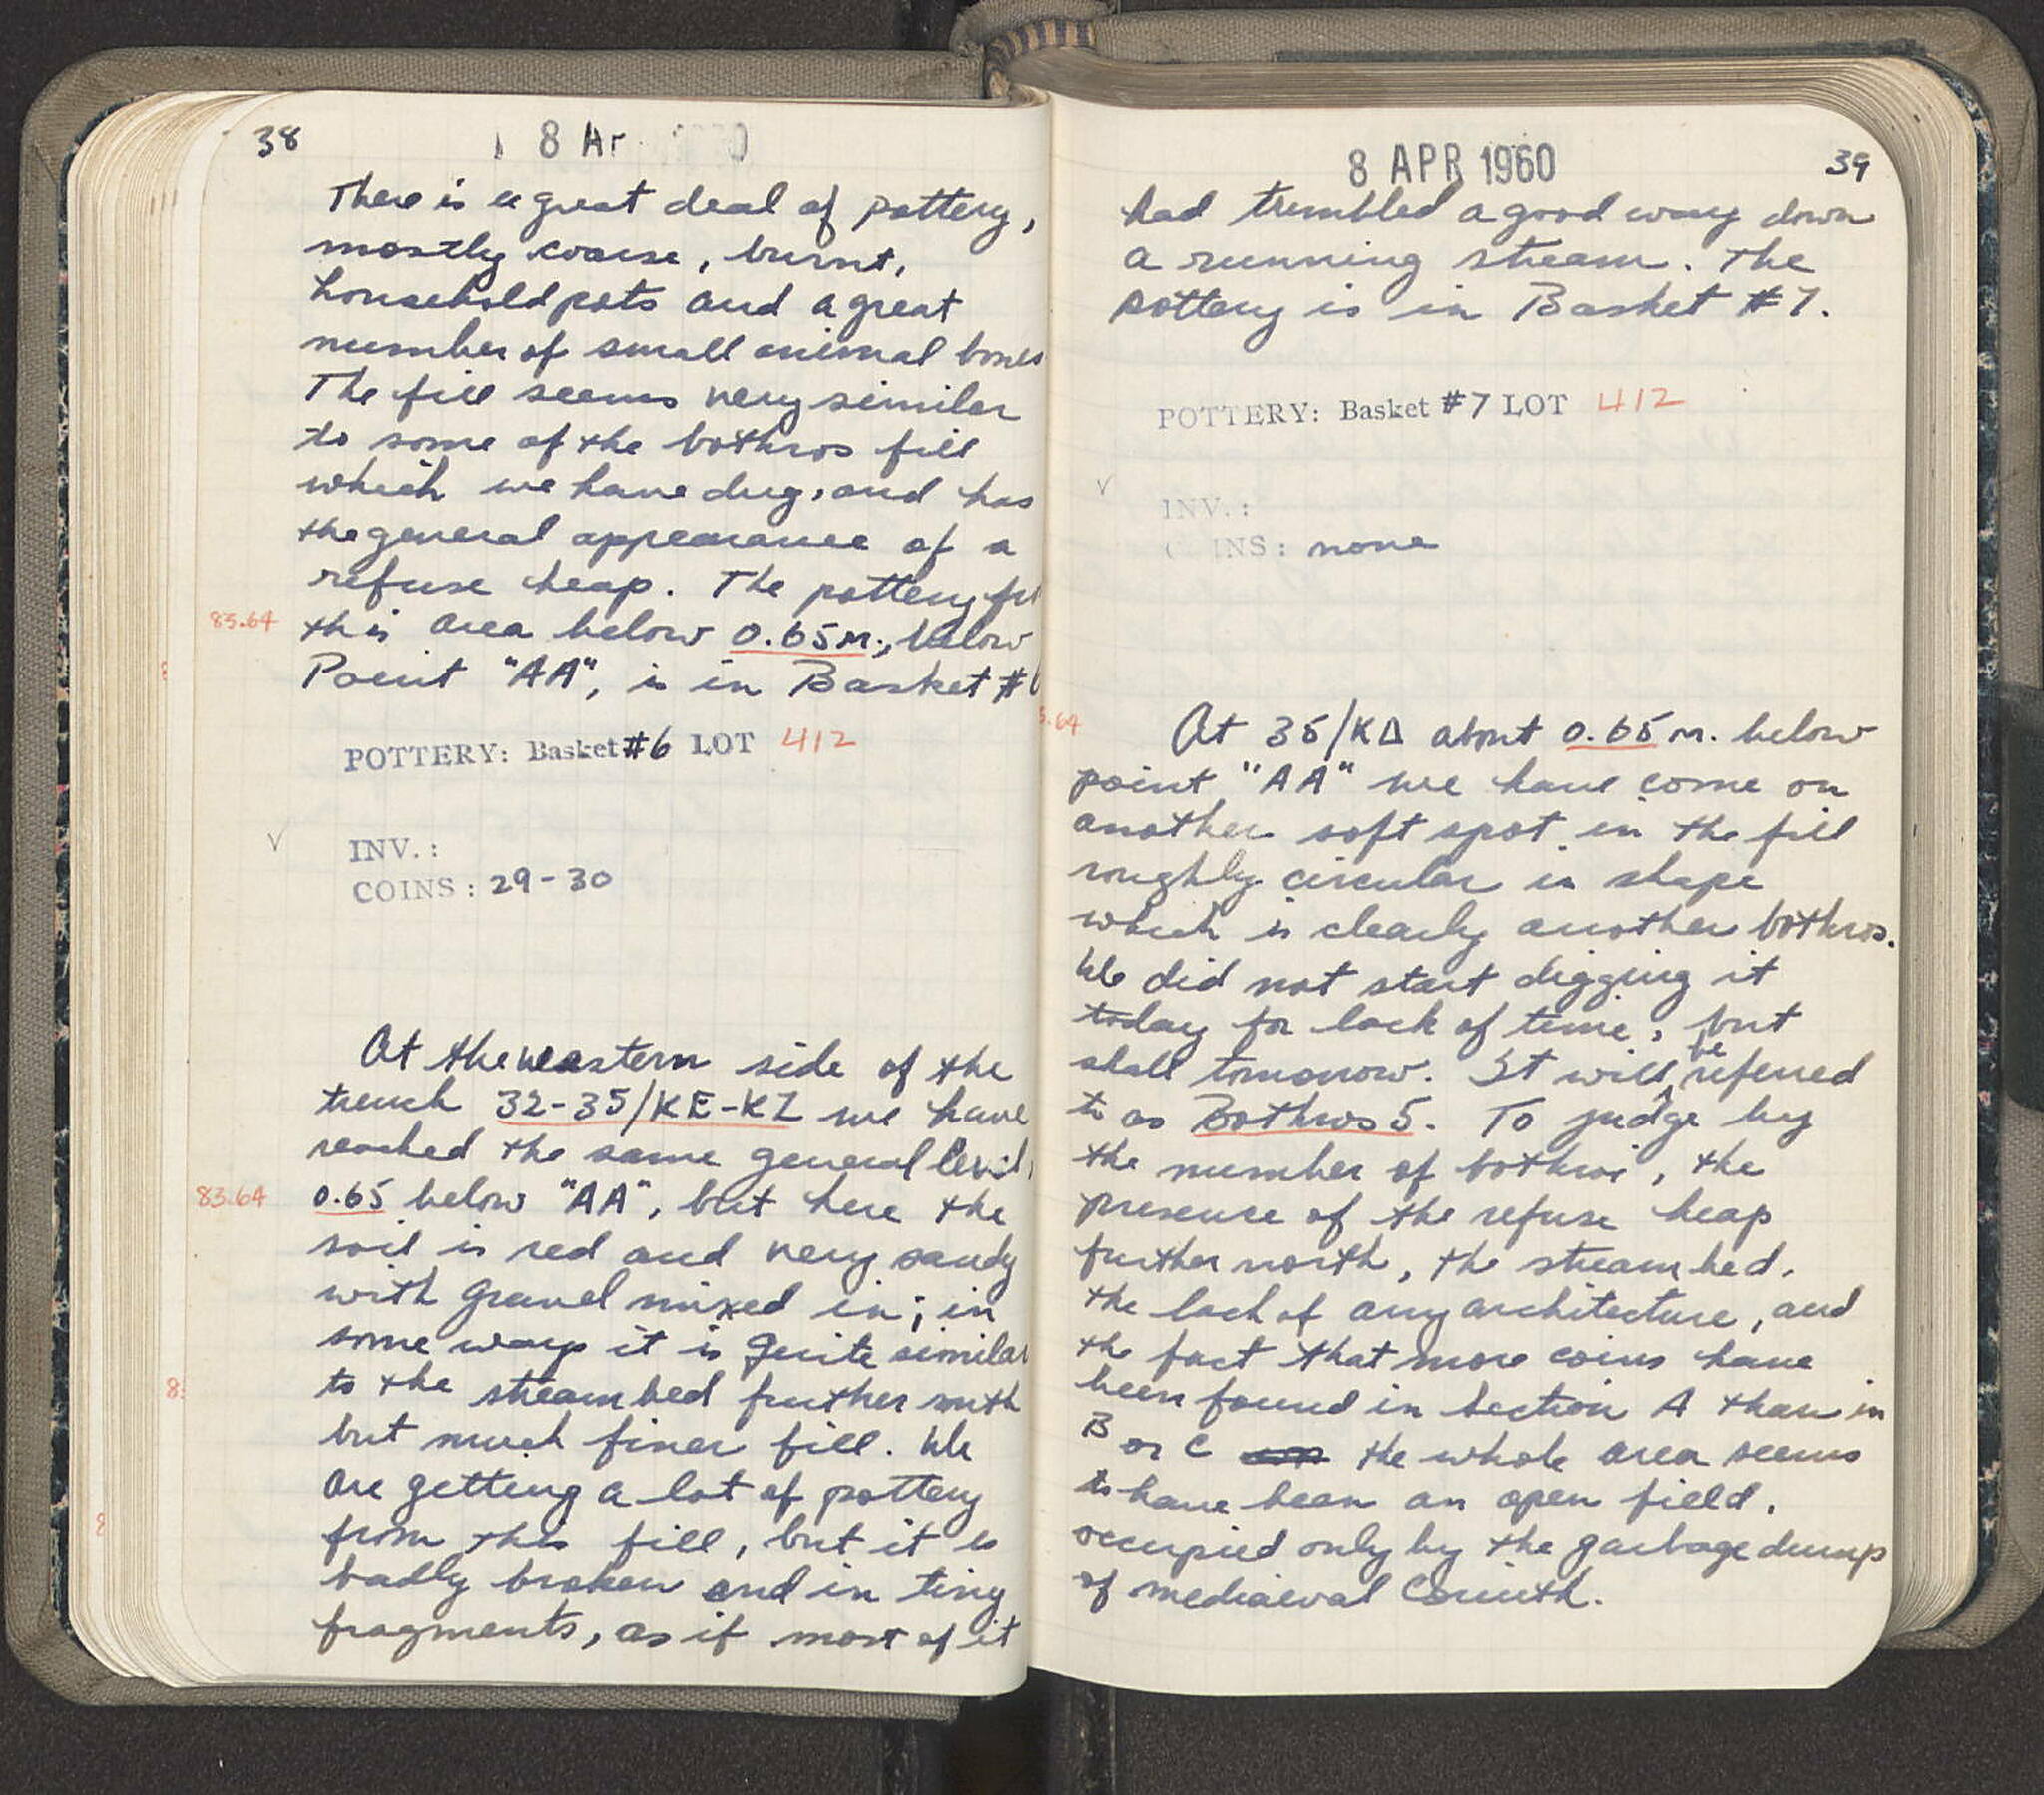 38
8 Ap
There is a great deal of pottery,
mostly coarse, burnt,
household pots and a great
number of small animal bones
The fill seems very similar
to some of the bothros fill
which we have dug, and has
the general appearance of a
refuse heap. The pottery fr
83.64 this area below 0.65 m., below
Point "AA", is in Basket #6
POTTERY: Basket #6 LOT 412
√ INV.:
COINS: 29-30
At the western side of the
trench 32-35/KE-KZ we have
reached the same general level,
83.64 0.65 below "AA", but here the
soil is red and very sandy
with gravel mixed in; in
some ways it is quite similar
to the stream bed further south
but much finer fill. We
are getting a lot of pottery
from this fill, but it is
badly broken and in tiny
fragments, as if most of it
8 APR 1960
39
had trembled a good way down
a running stream. The
pottery is in Basket #7.
POTTERY: Basket #7 LOT 412
√ INV.:
COINS: none
3.64 At 35/KΔ about 0.65 m. below
point "AA" we have come on
another soft spot in the fill
roughly circular in shape
which is clearly another bothros.
We did not start digging it
today for lack of time, but
shall tomorrow. It will be referred
to as Bothros 5. To judge by
the number of bothroi, the
presence of the refuse heap
further north, the stream bed,
the lack of any architecture, and
the fact that more coins have
been found in Section A than in
B or C the whole area seems
to have been an open field,
occupied only by the garbage dump
of mediaeval Corinth.